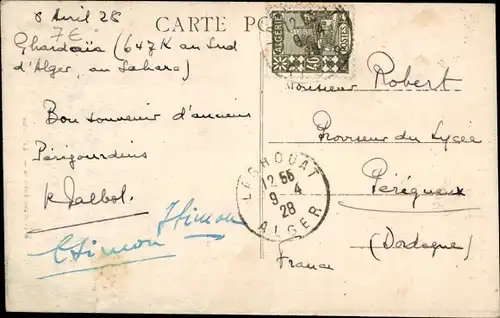 8 Avril 28
CARTE PO
7E
Ghardaïa (647 K au Sud
d'Alger, au Sahara)
Bon souvenir d'anciens
Périgourdins
ALGERIE
POSTES
40
Monsieur Robert
Proviseur du Lycée
Périgueux
(Dordogne)
France
LAGHOUAT
12 55
9 - 4
28
ALGER